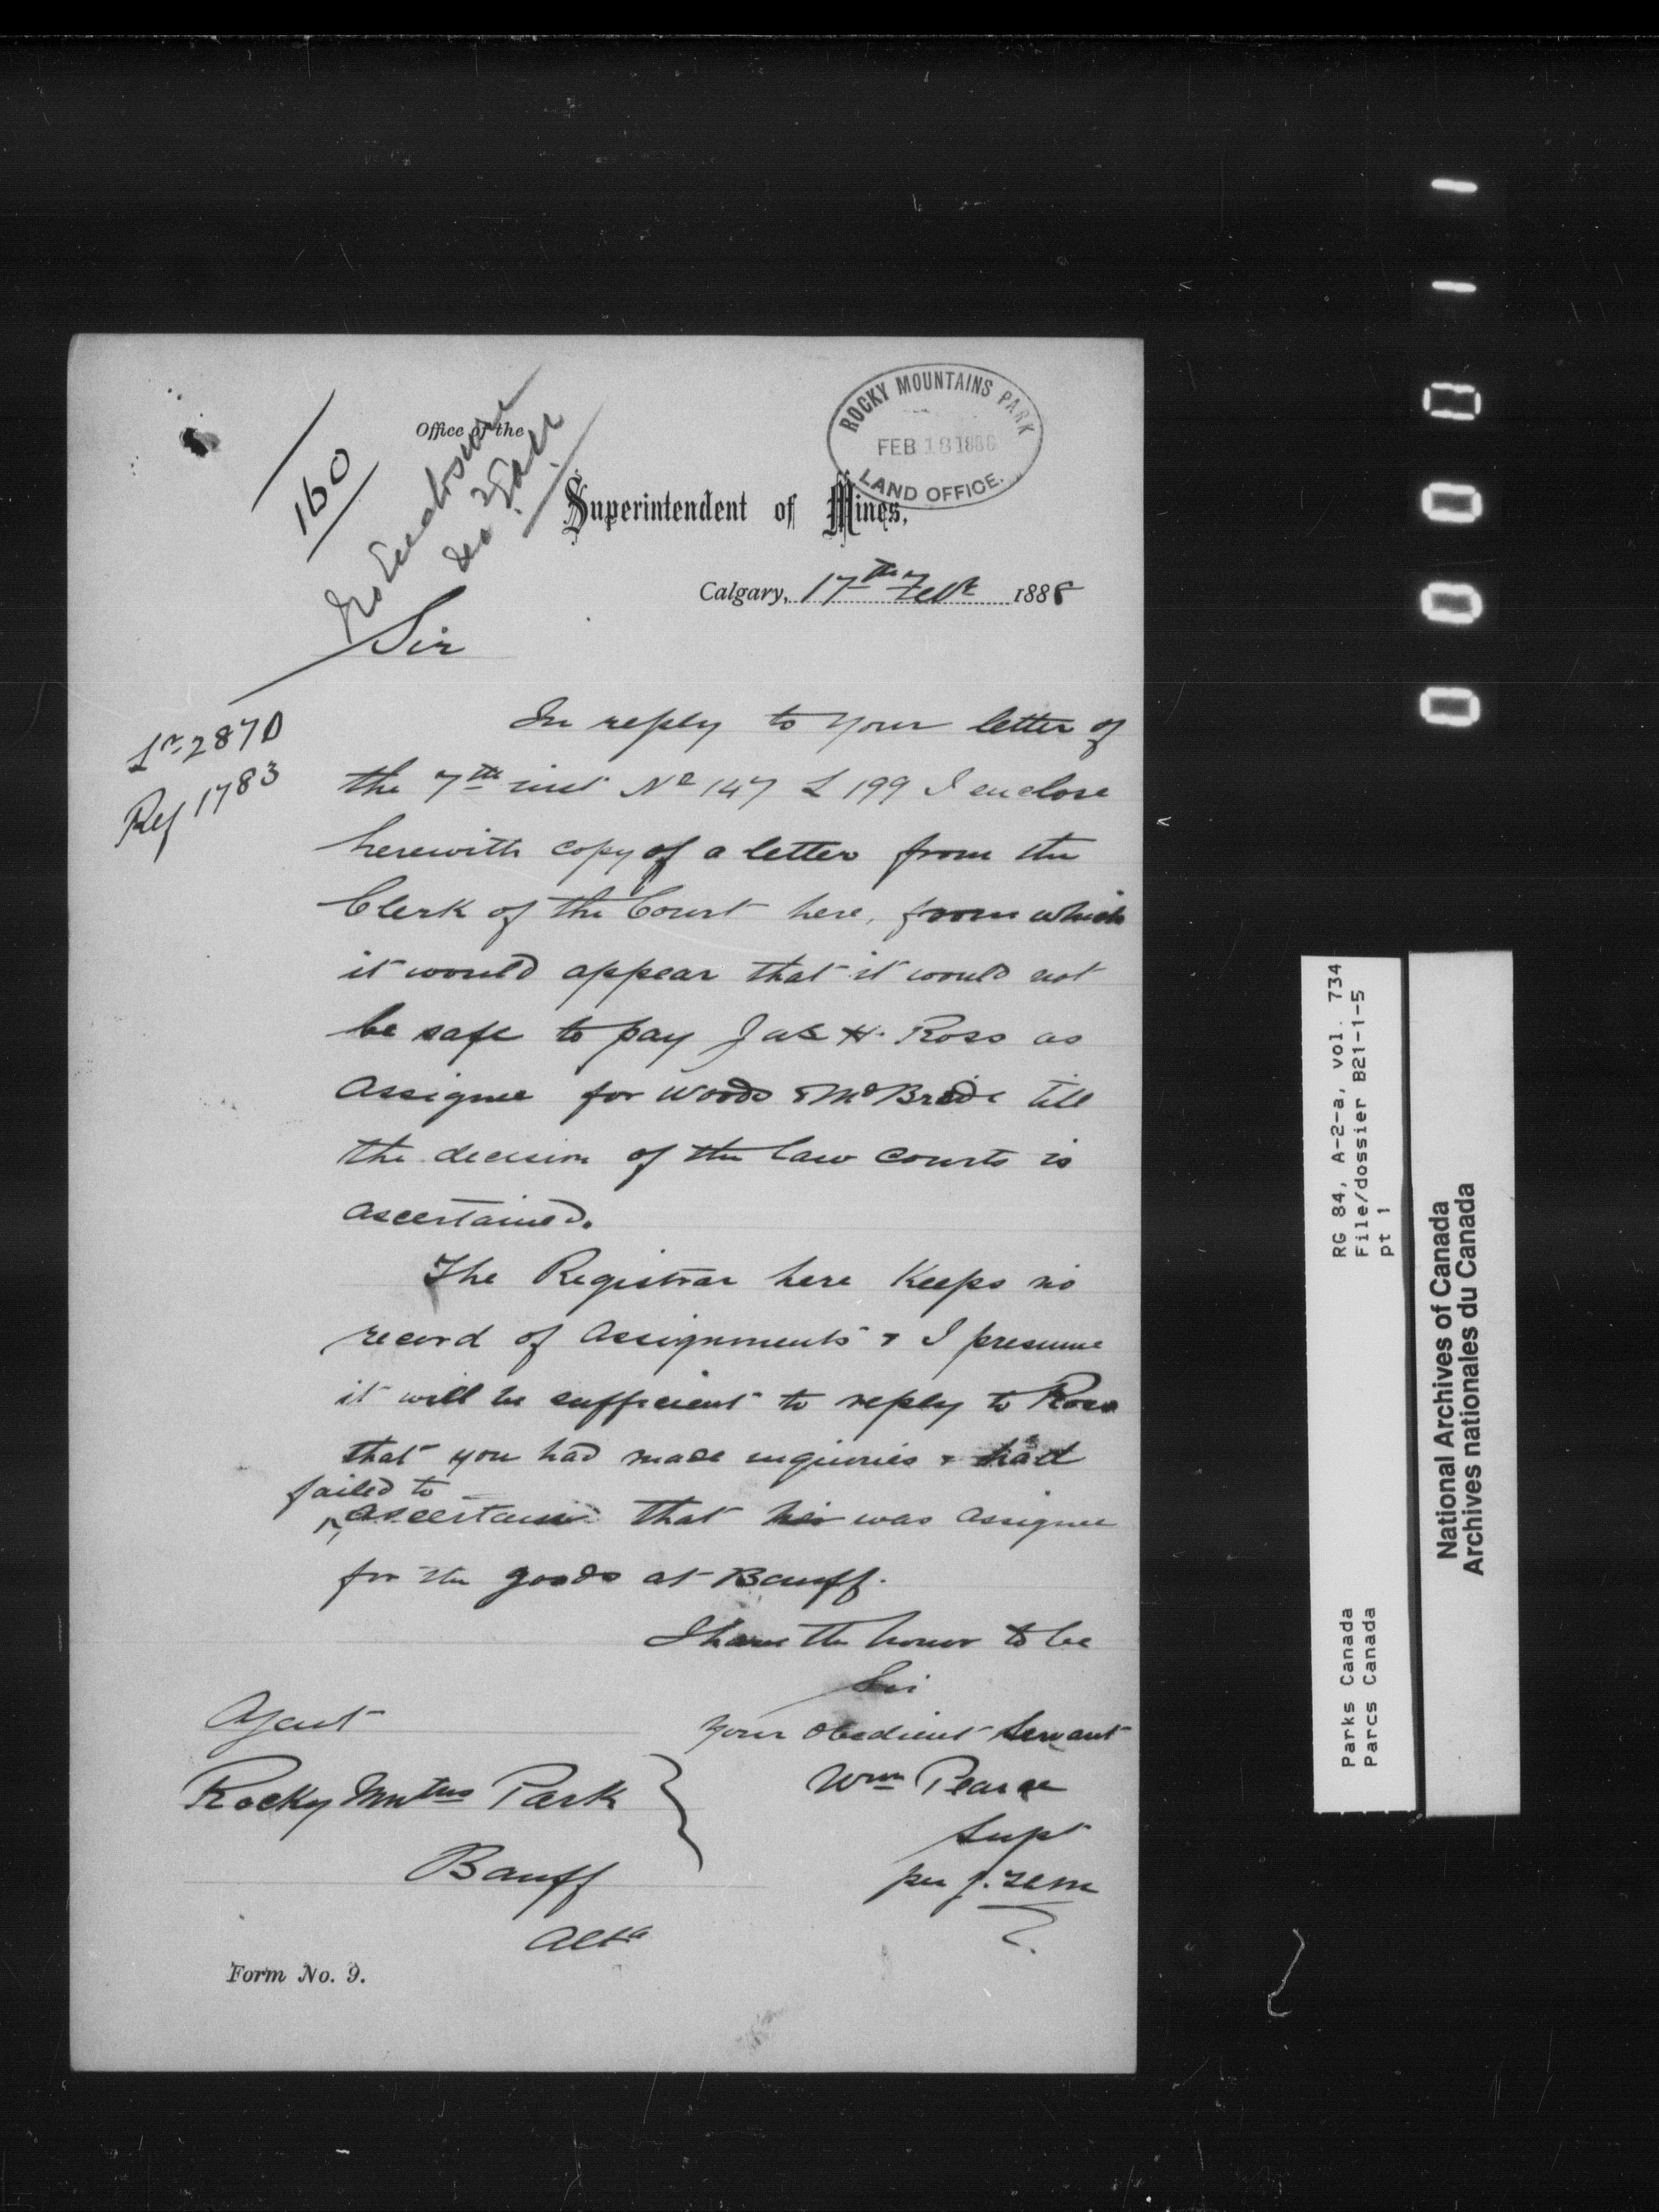 160
No Enclosure
Office of the
ROCKY MOUNTAINS PARK
FEB 18 1888
LAND OFFICE.
Superintendent of Mines,
Calgary, 17th Feb 1888
Sir
287D
Ref 1783
In reply to your letter of
the 7th inst No 147 L 199 I enclose
herewith copy of a letter from the
Clerk of the Court here, from which
it would appear that it would not
be safe to pay Jas H. Ross as
Assignee for Woods & McBride till
the decision of the law courts is
ascertained.
The Registrar here keeps no
record of Assignments & I presume
it will be sufficient to reply to Ross
that you had made inquiries & had
failed to
ascertain that he was Assignee
for the goods at Banff.
I have the honor to be
Sir
Your obedient servant
Wm Pearce
Supt
per
Agent
Rocky Mntns Park
Banff
Alta
Form No. 9.
1 1 0 0 0 0
RG 84, A-2-a, vol. 734
File/dossier B21-1-5
pt 1
Parks Canada
Parcs Canada
National Archives of Canada
Archives nationales du Canada